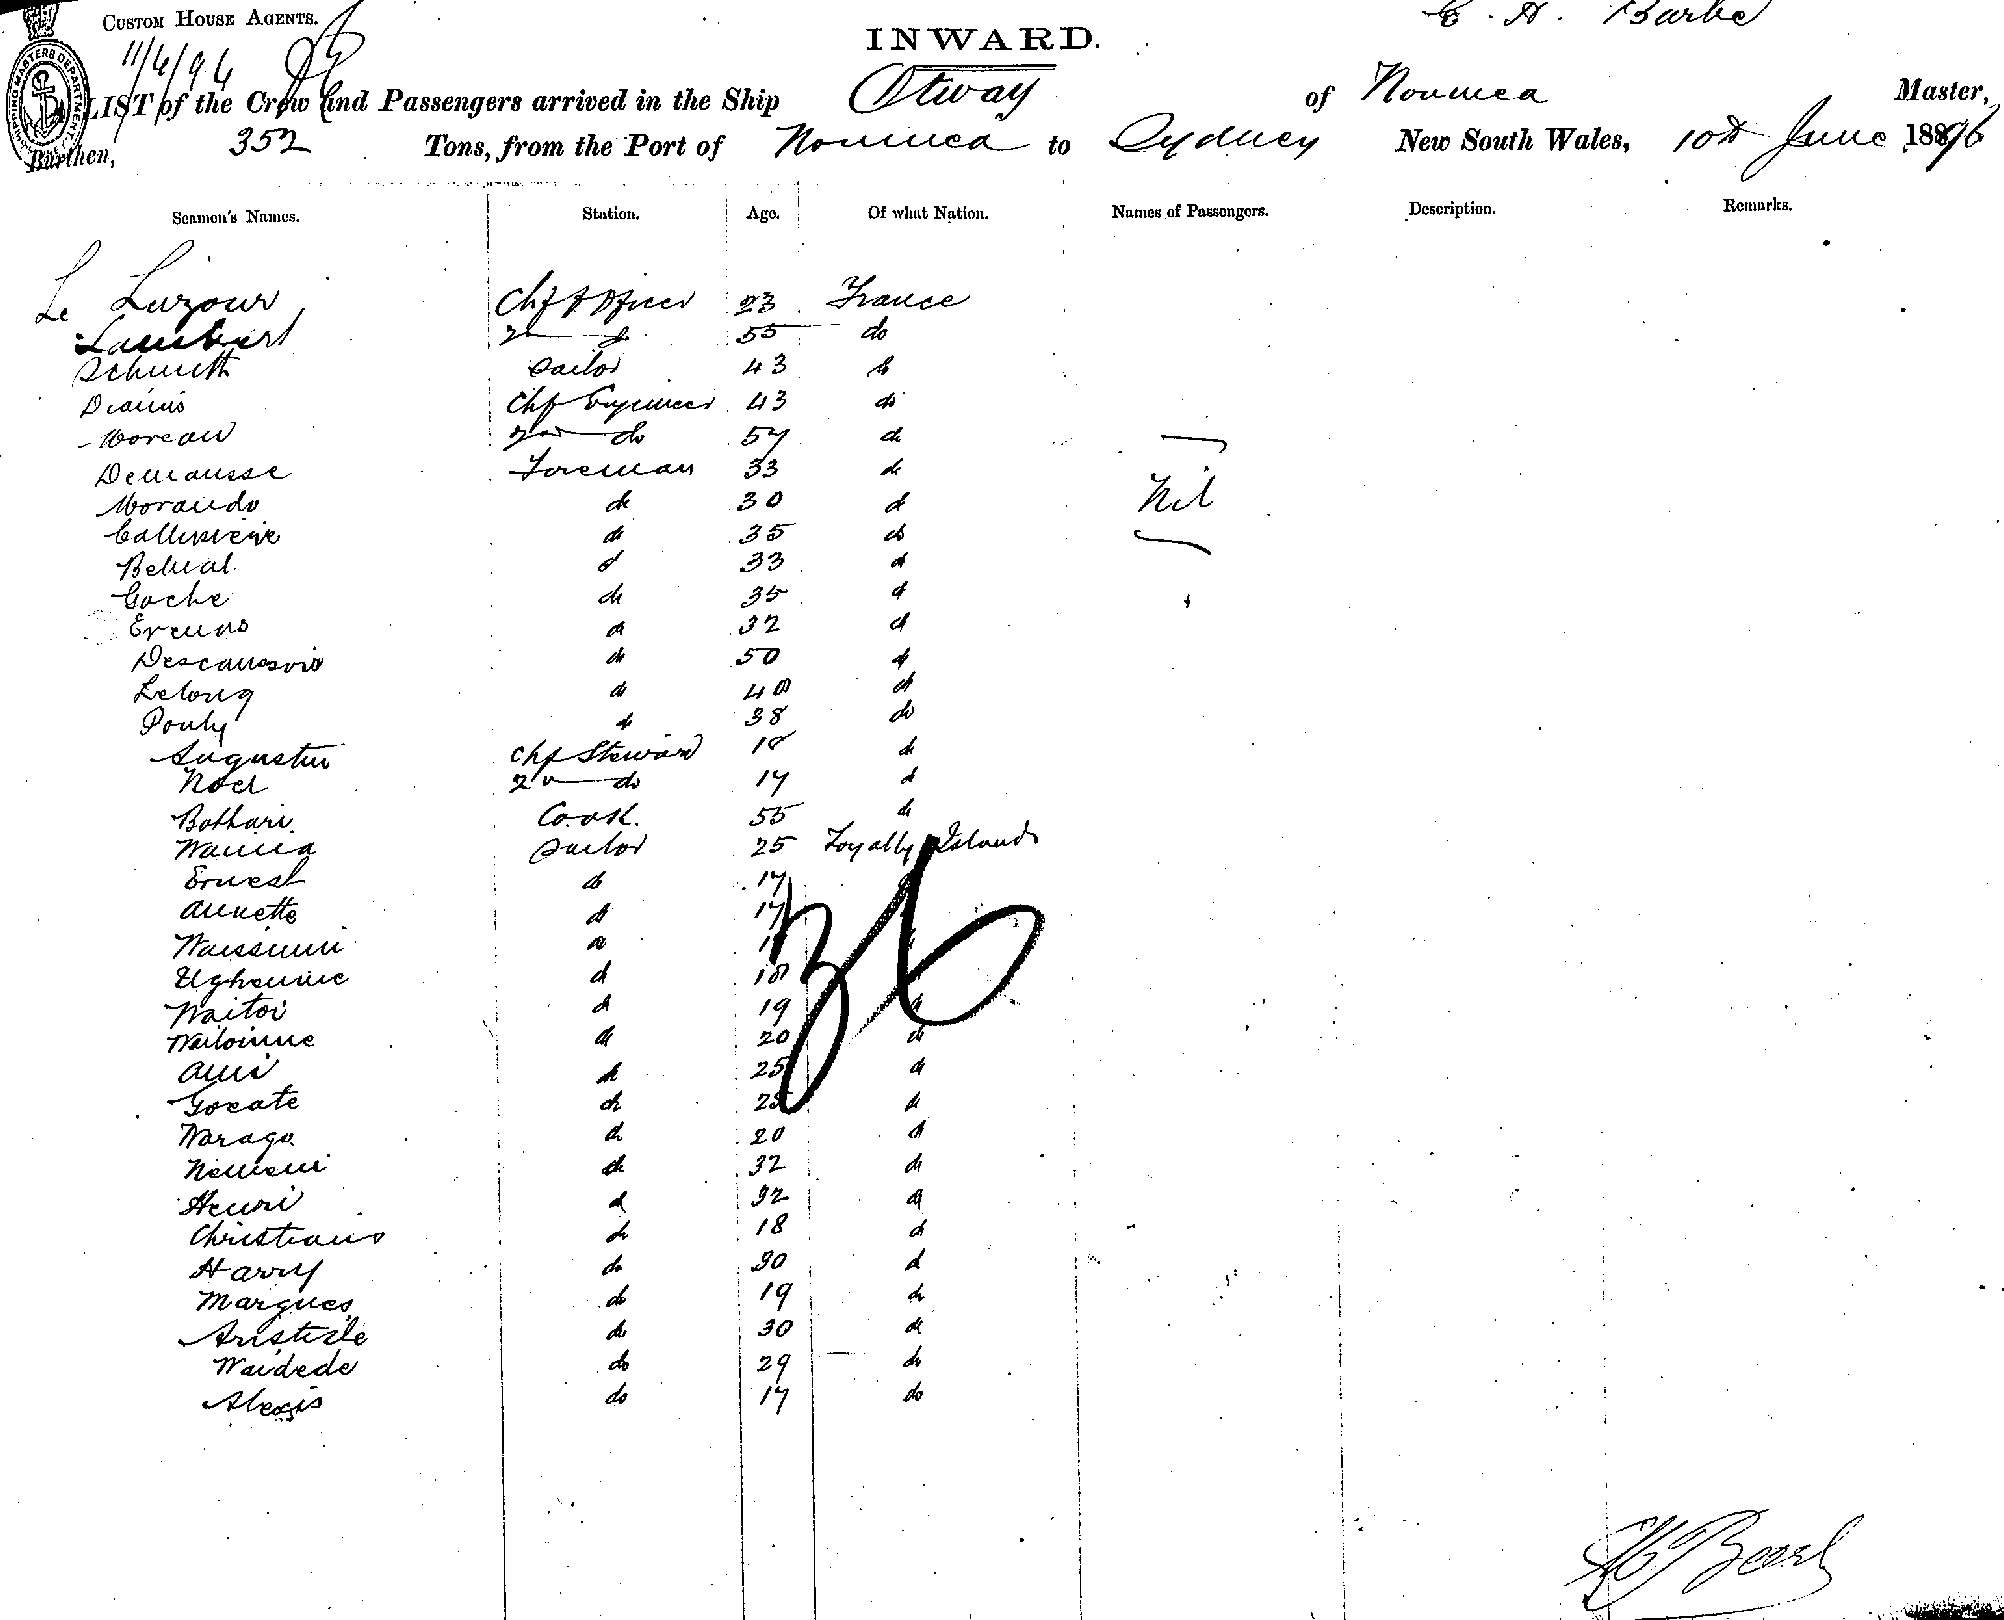 CUSTOM HOUSE AGENTS.
INWARD.
11/6/96
LIST of the Crew and Passengers arrived in the Ship Otway of Noumea Master,
Burthen, 352 Tons, from the Port of Noumea to Sydney New South Wales, 10th June 1896
Seamen's Names. Station. Age. Of what Nation. Names of Passengers. Description. Remarks.
Le Luzour Chf Officer 23 France
Lambert 2nd do 55 do
Schmitt Sailor 43 do
Chf Engineer 43 do
Moreau 2nd do 57 do
Demausse Foreman 33 do
Morando do 30 do Nil
do 35 do
Belual do 33 do
Goche do 35 do
do 32 do
do 50 do
Lelong do 40 do
Pouly do 38 do
Augustin Chf Steward 18 do
Noel 2nd do 17 do
Bothari Cook. 55 do
Wamea Sailor 25 Loyalty Islands
Ernest do 17
Annette do 17
Waissimi do
do 18
Waitoi do 19 do
do 20 do
Ami do 25 do
Gocate do 25 do
Warago do 20 do
do 32 do
Henri do 32 do
Christians do 18 do
Harry do 30 do
Marques do 19 do
Aristide do 30 do
Waidede do 29 do
Alexis do 17 do
36